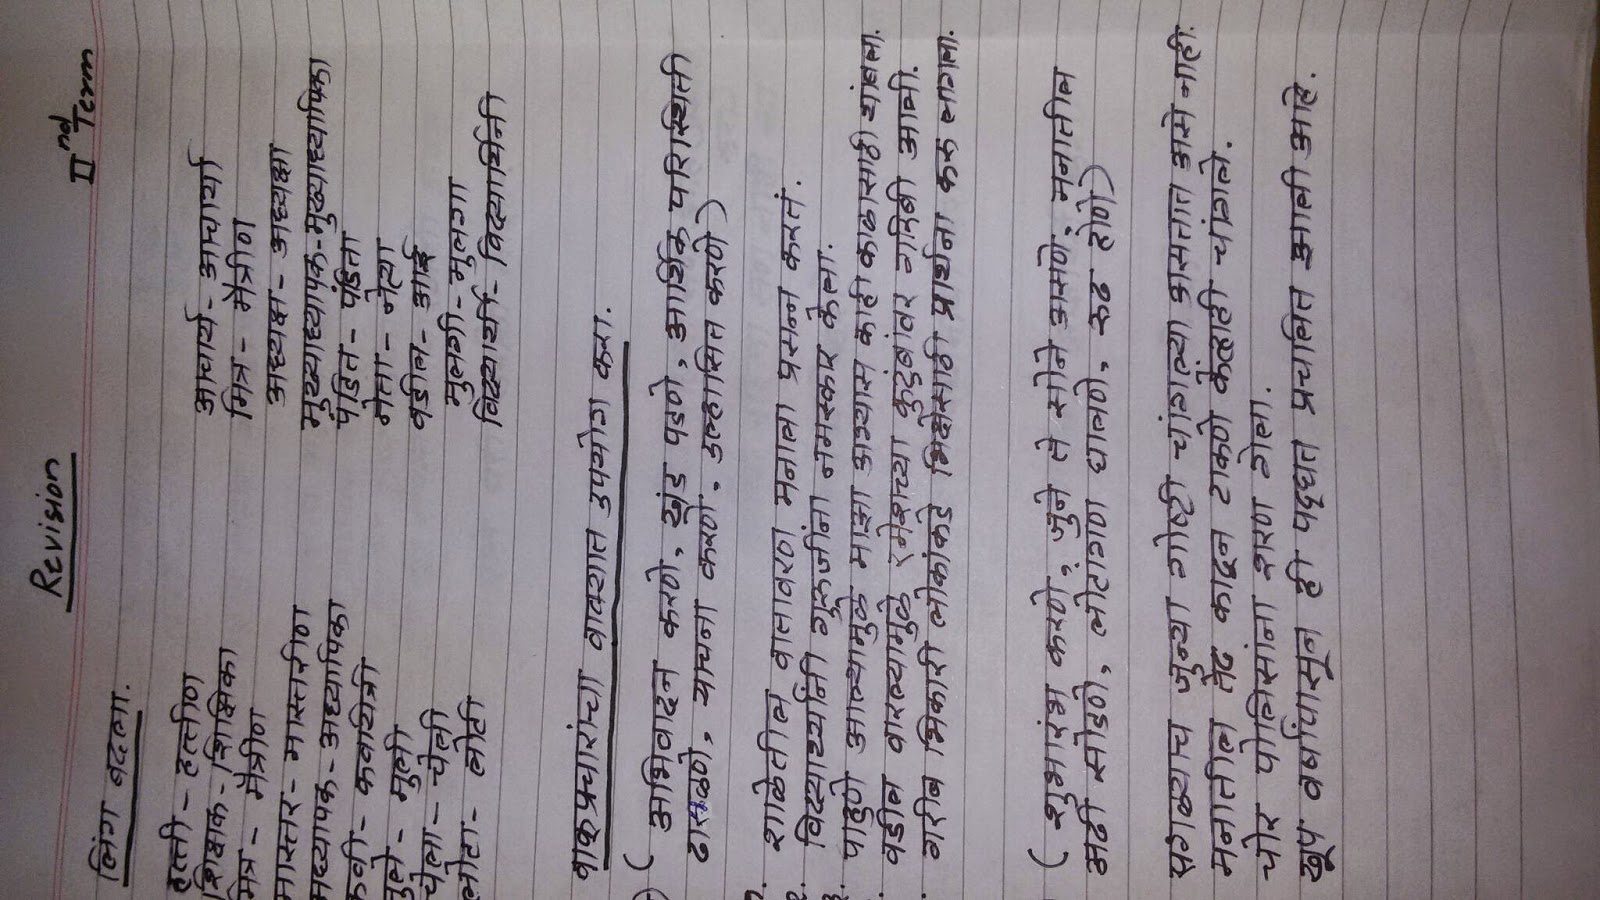 Revision
IInd Term
लिंग बदला.
हत्ती - हत्तीण
शिक्षक - शिक्षिका
मित्र - मैत्रीण
मास्तर - मास्तरीण
अध्यापक - अध्यापिका
कवी - कवयित्री
मुले - मुली
चेला - चेली
लोटा - लोटी
आचार्य - आचार्या
मित्र - मैत्रीण
अध्यक्ष - अध्यक्षा
मुख्याध्यापक - मुख्याध्यापिका
पंडित - पंडिता
नेता - नेत्या
वडील - आई
मुलगी - मुलगा
विद्यार्थी - विद्यार्थिनी
वाक्प्रचारांचा वाक्यात उपयोग करा.
( अभिवादन करणे, खंड पडणे, आर्थिक परिस्थिती
ढासळणे, याचना करणे. उल्हासित करणे )
१. शाळेतील वातावरण मनाला प्रसन्न करतं.
२. विद्यार्थ्यांनी गुरुजींना नमस्कार केला.
३. पाहुणे आल्यामुळे माझा अभ्यास काही काळासाठी थांबला.
वडील वारल्यामुळे रमेशच्या कुटुंबांवर गरिबी आली.
गरीब भिकारी लोकांकडे भिक्षेसाठी प्रार्थना करू लागला.
( शुभारंभ करणे; जुने ते सोने असणे; मनातील
अढी सोडणे, लोटांगण घालणे, रूढ होणे )
सगळ्याच जुन्या गोष्टी चांगल्या असतात असे नाही.
मनातील तेढ काढून टाकणे केव्हाही चांगले.
चोर पोलिसांना शरण गेला.
खूप वर्षापासून ही पद्धत प्रचलित झाली आहे.